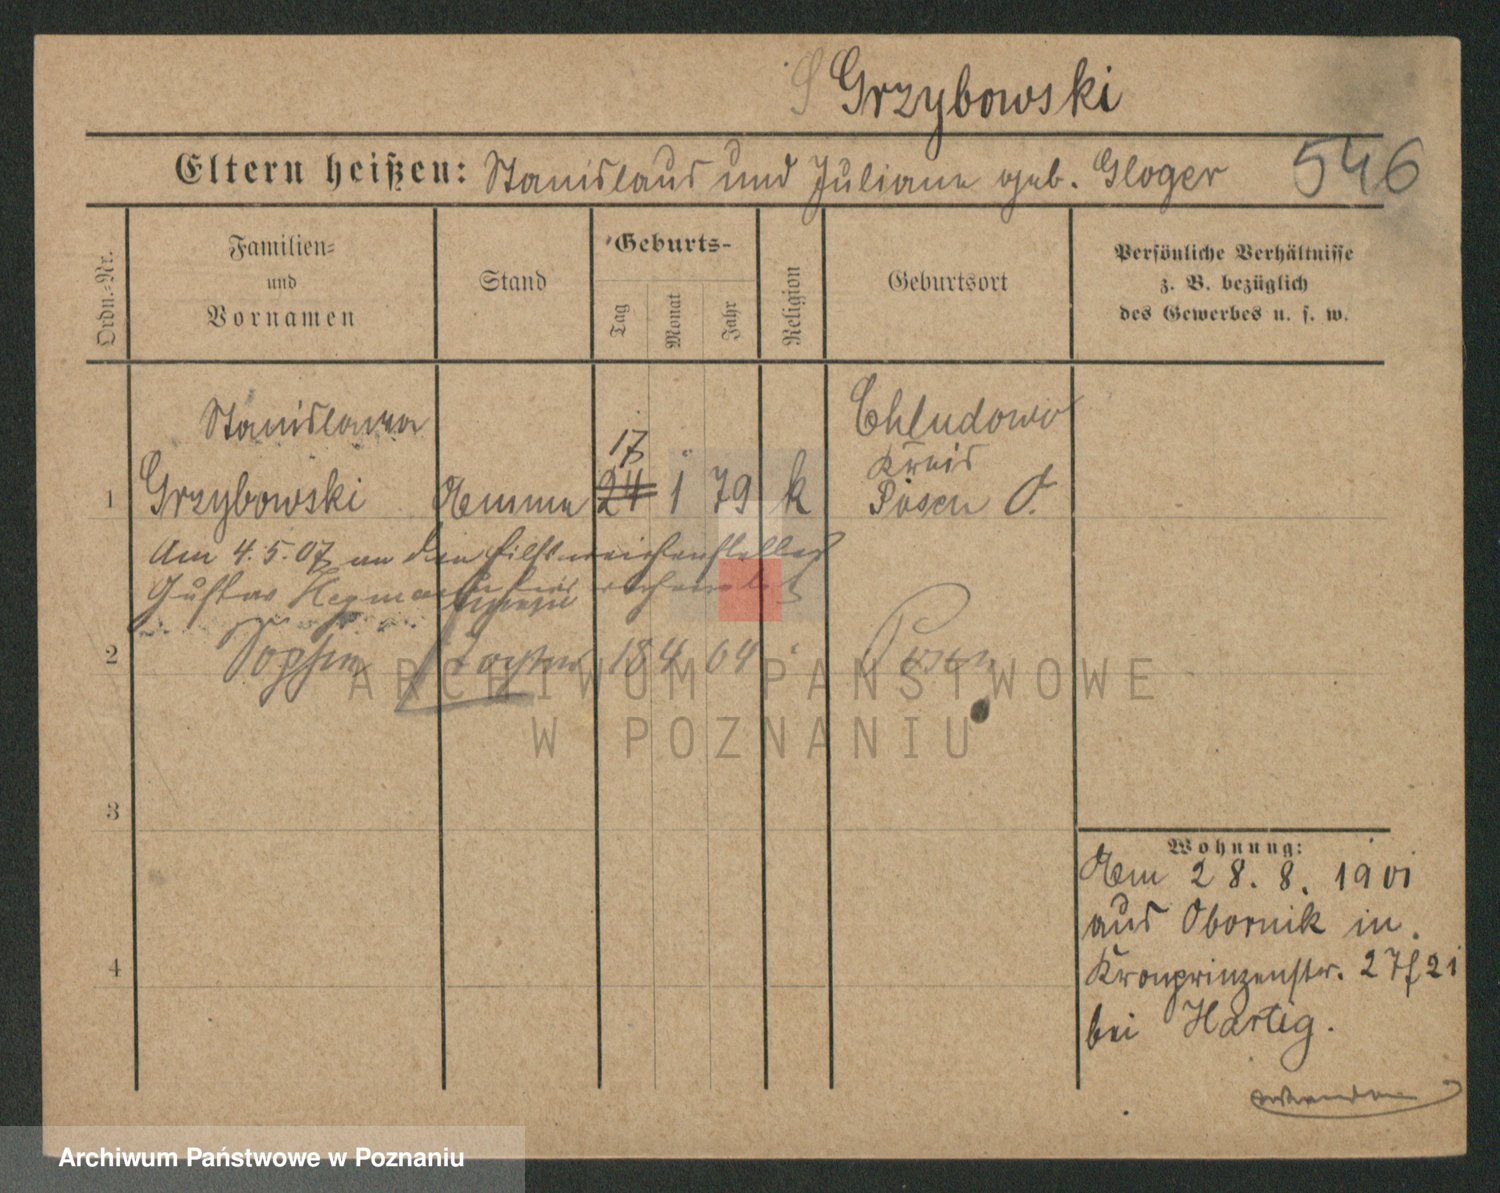 Grzybowski
Eltern heißen: Stanislaus und Juliane geb. Gloger 546
Ordn.-Nr.
Familien-
und
Vornamen
Stand
Geburts-
Tag
Monat
Jahr
Religion
Geburtsort
Persönliche Verhältnisse
z. B. bezüglich
des Gewerbes u. s. w.
Stanislawa
Grzybowski
1
Amme
17
24
1
79
k
Chludowo
Kreis
Posen O.
Am 4.5.07 an den
Gustav
2
18 4 04
Posen
3
4
Wohnung:
Am 28. 8. 1901
aus Obornik in
Kronprinzenstr. 27 f 21
bei Hartig.
ARCHIWUM PAŃSTWOWE
W POZNANIU
Archiwum Państwowe w Poznaniu